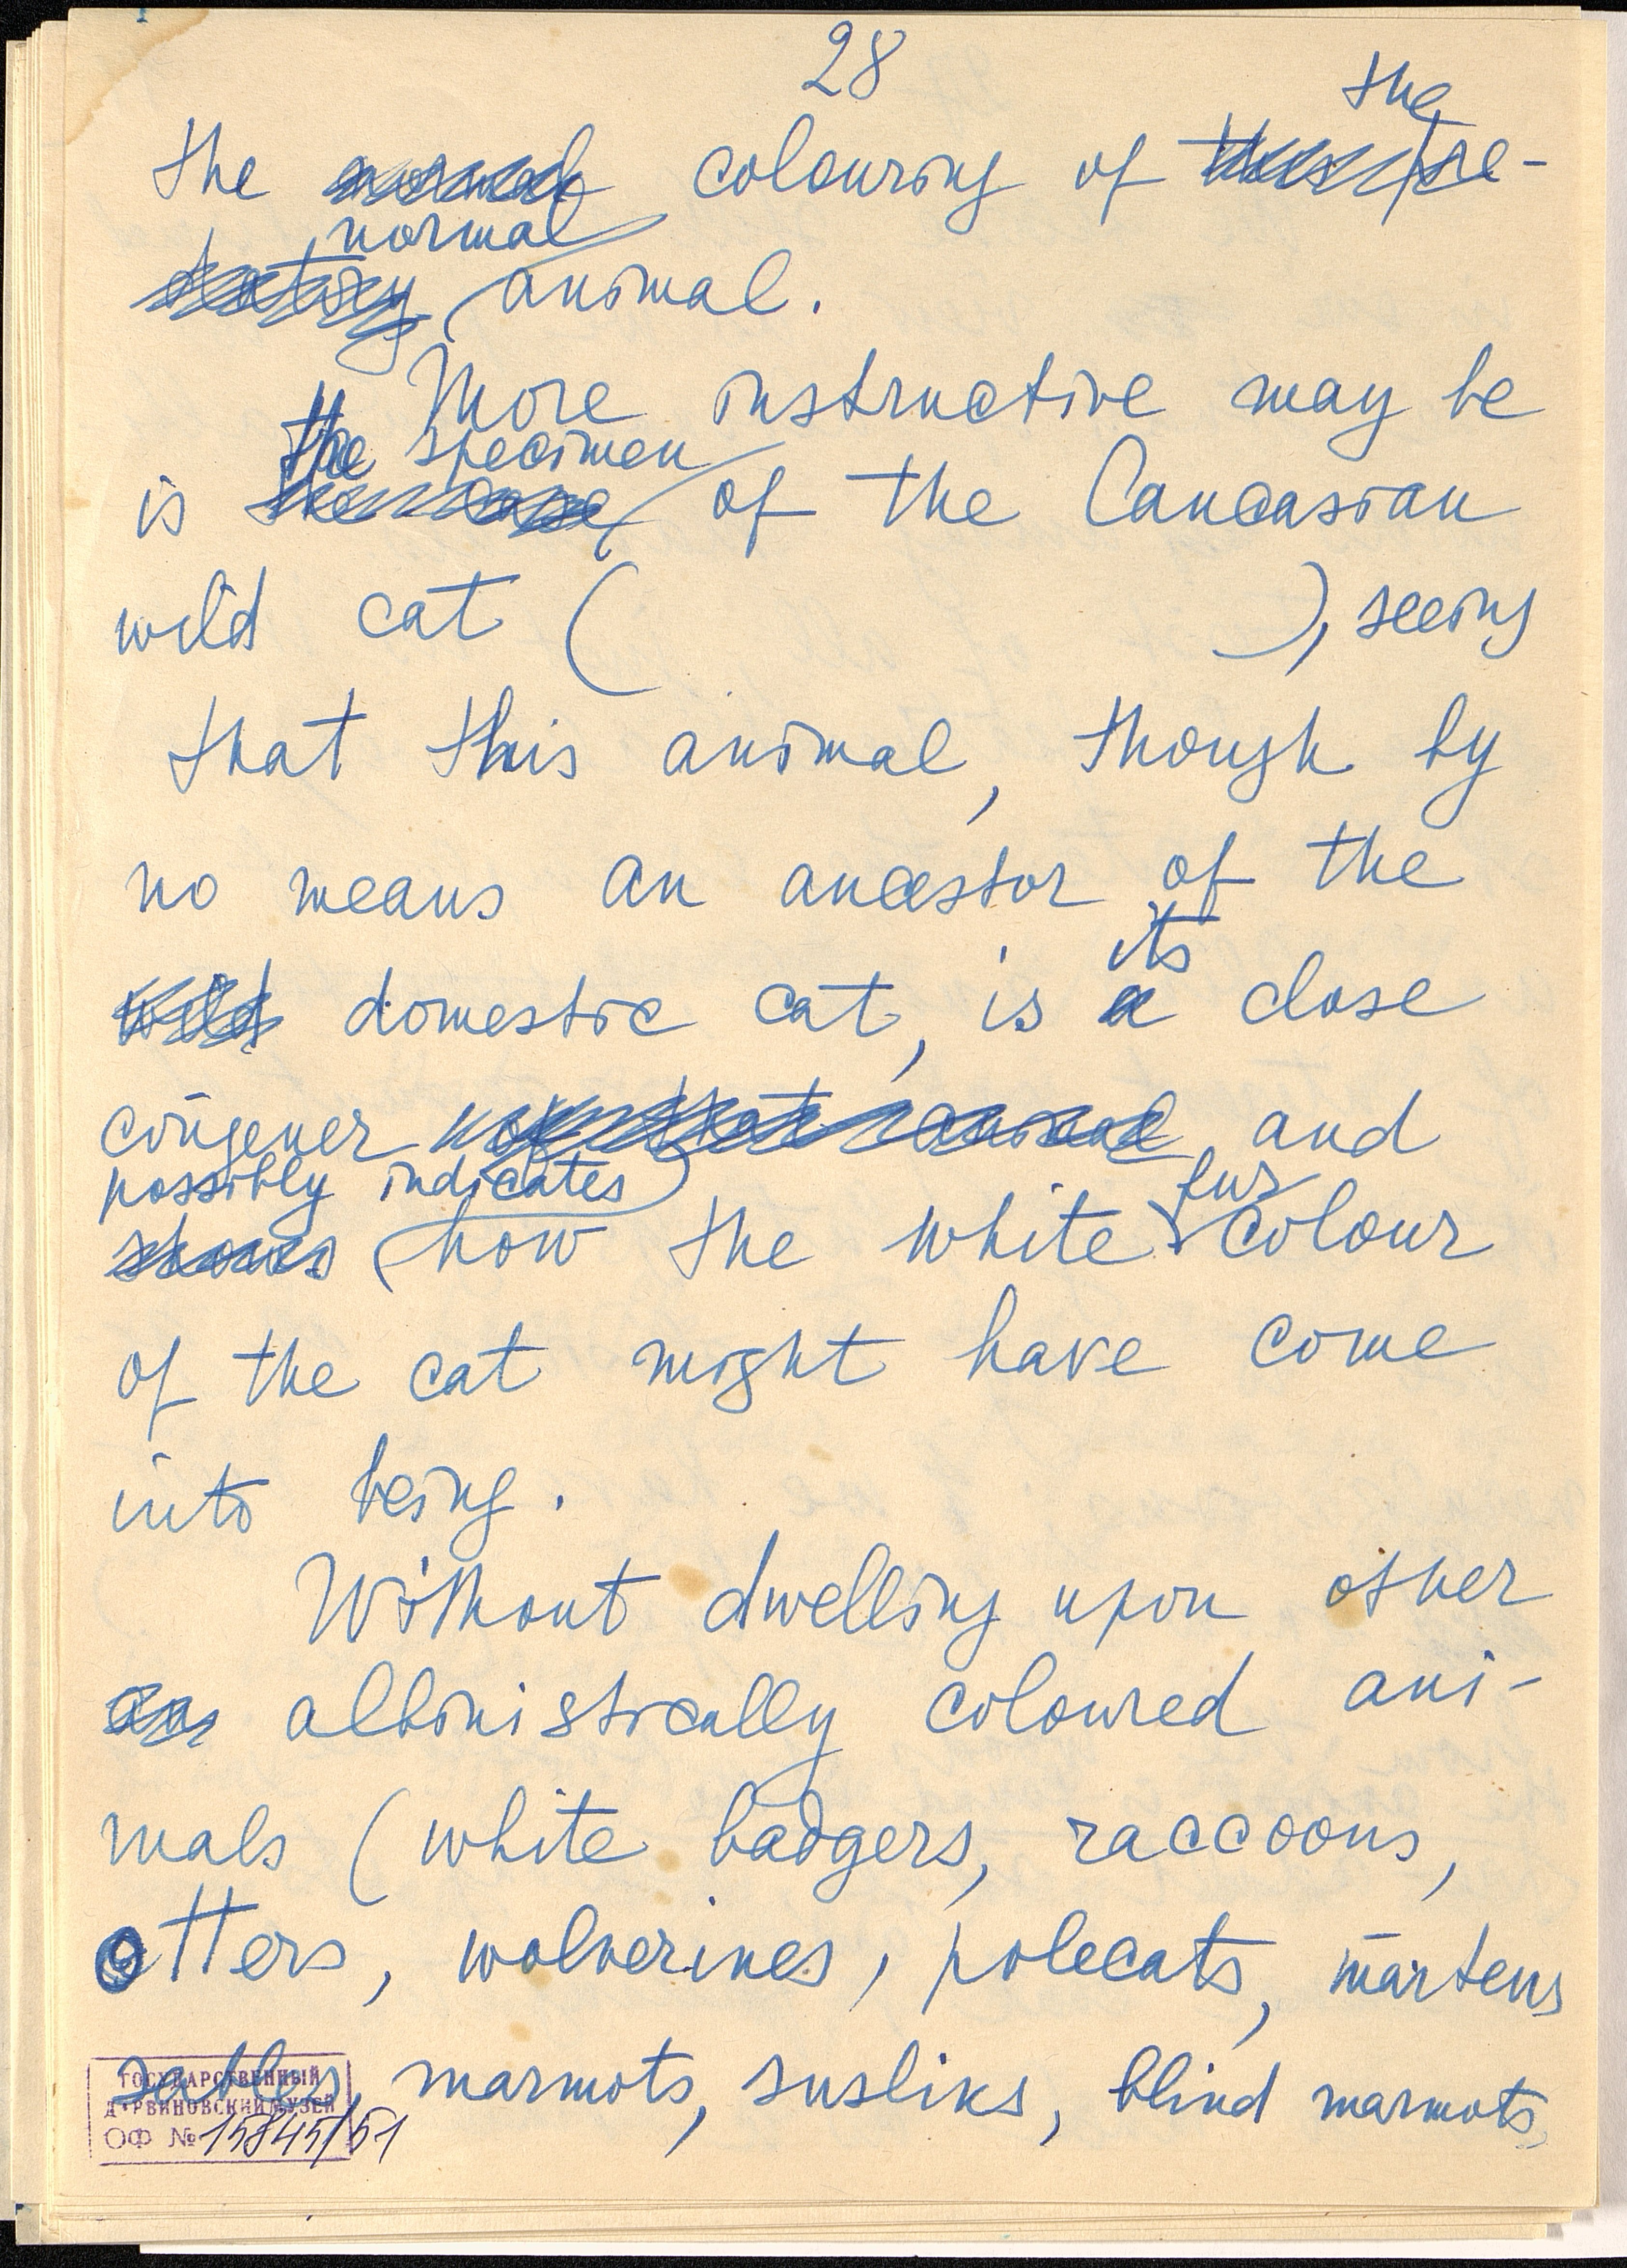 28
the
the normal colouring of this pre-
normal
datory animal.
More instructive may be
the specimen
is the case of the Caucasian
wild cat ( ), seeing
that this animal, though by
no means an ancestor of the
its
wild domestic cat, is a close
congener of that animal and
possibly indicates fur
shows how the white colour
of the cat might have come
into being.
Without dwelling upon other
an albinistically coloured ani-
mals (white badgers, raccoons,
otters, wolverines, polecats, martens
sables, marmots, susliks, blind marmots,
ГОСУДАРСТВЕННЫЙ
ДАРВИНОВСКИЙ МУЗЕЙ
ОФ № 15845/51